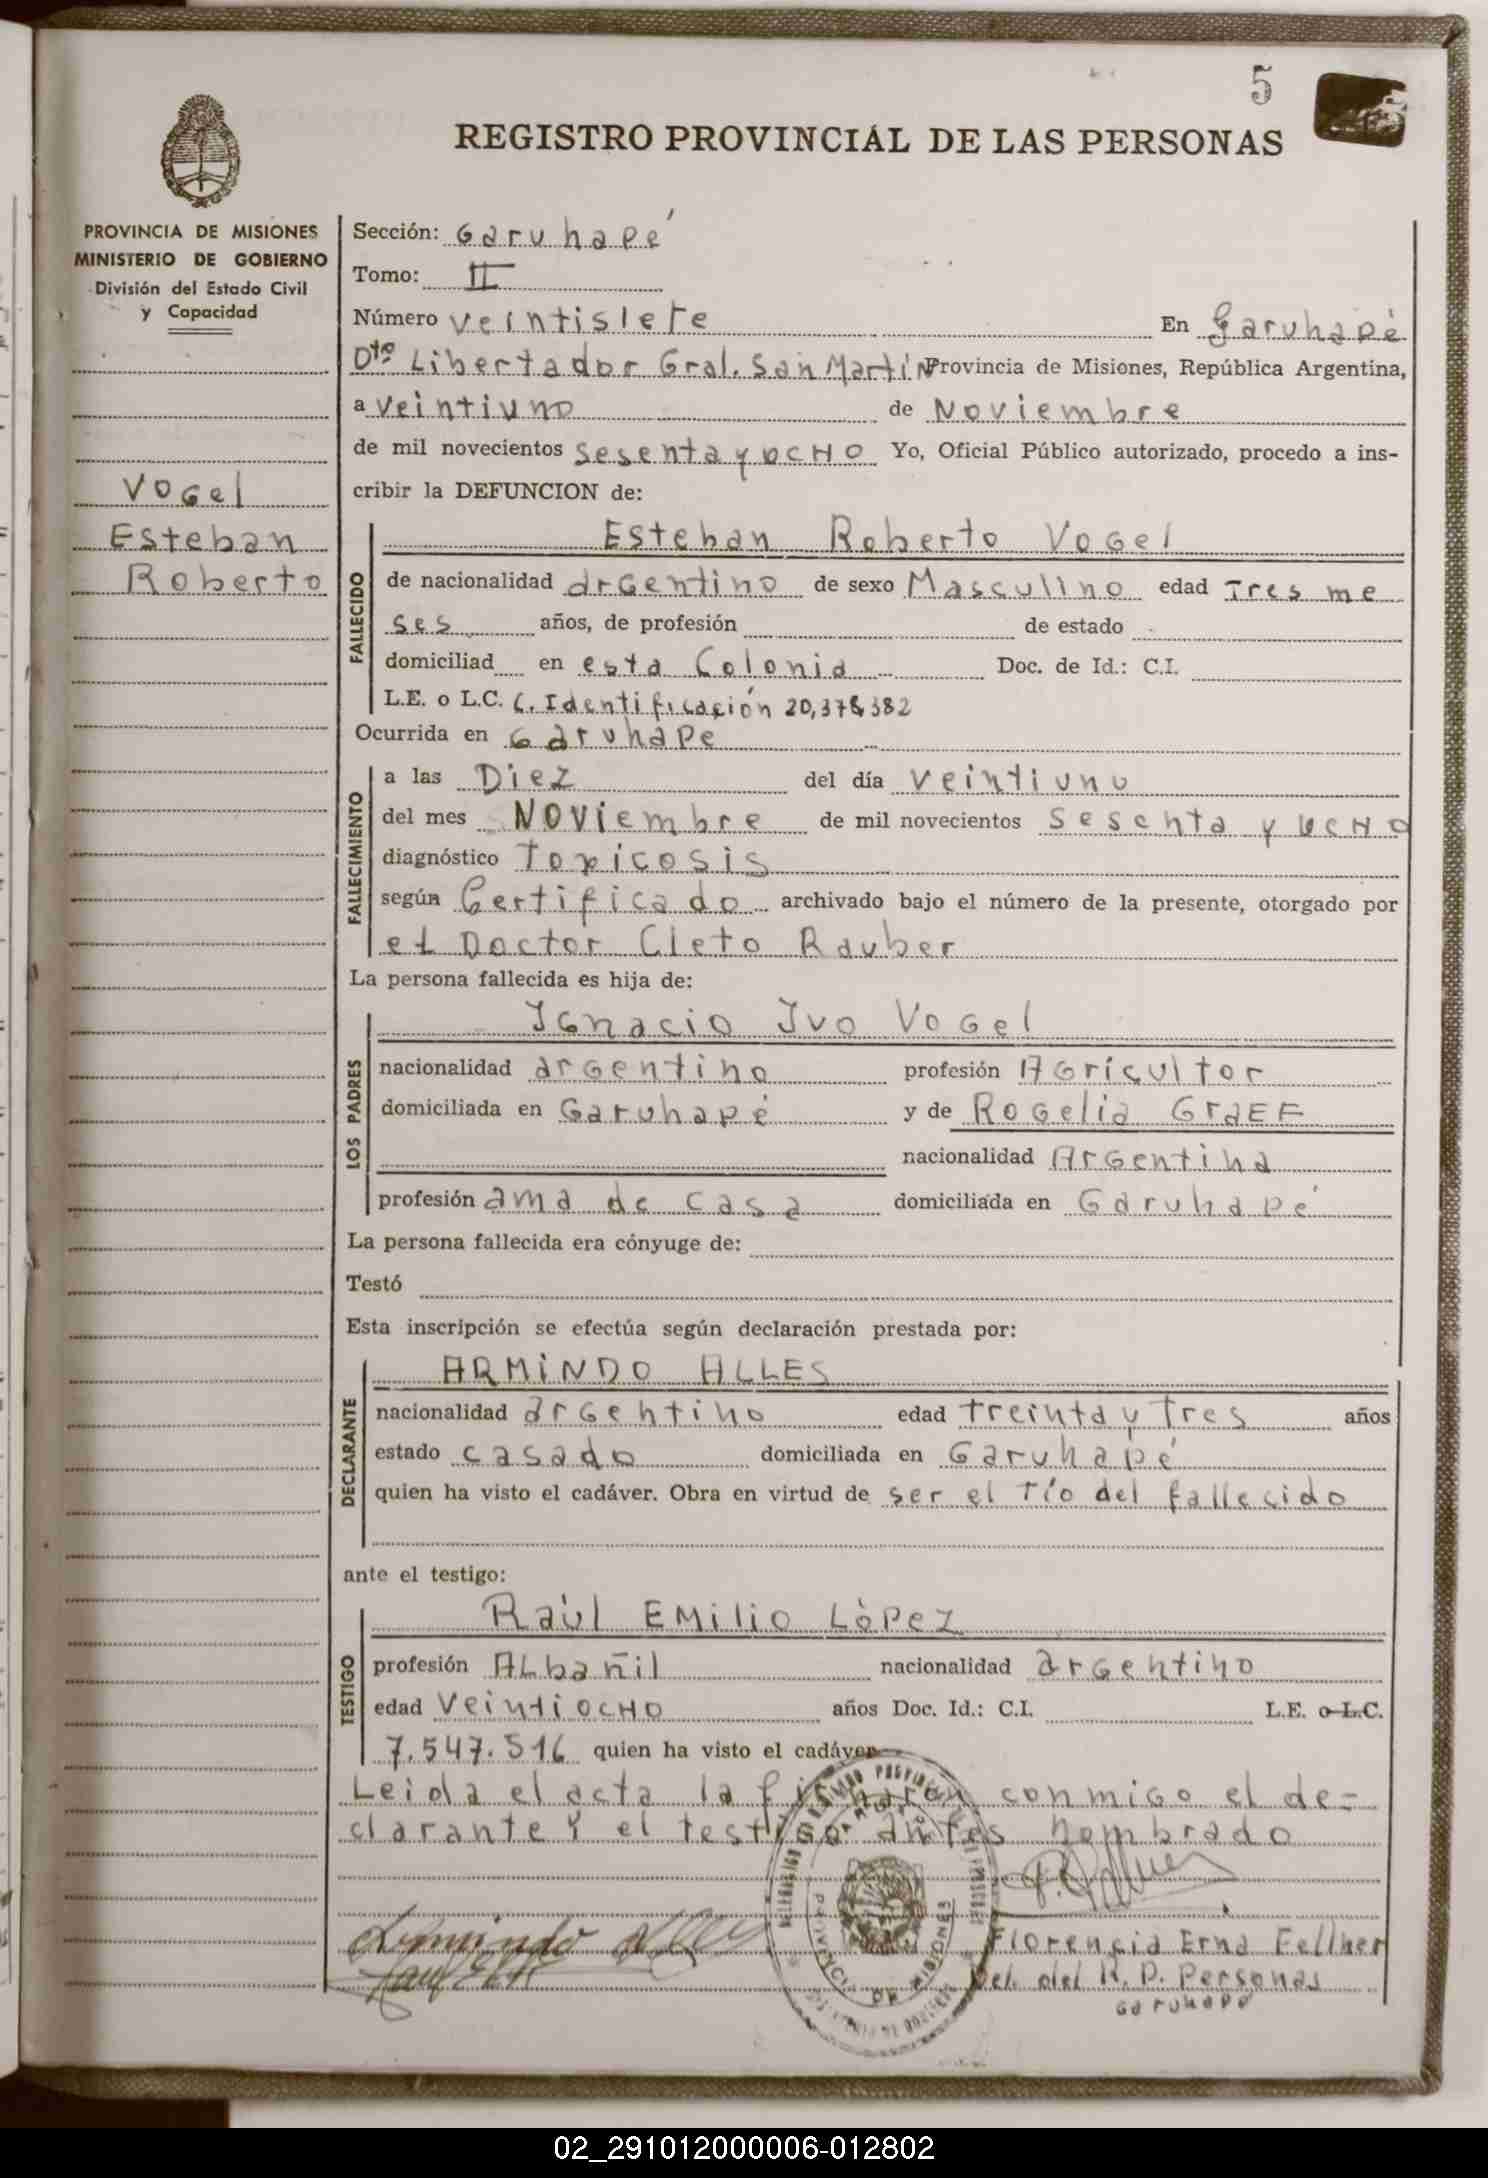 5
REGISTRO PROVINCIAL DE LAS PERSONAS
PROVINCIA DE MISIONES
MINISTERIO DE GOBIERNO
División del Estado Civil
y Capacidad
Vogel
Esteban
Roberto
Sección: Garuhapé
Tomo: II
Número veintisiete En Garuhapé
Dto Libertador Gral. San Martín Provincia de Misiones, República Argentina,
a veintiuno de Noviembre
de mil novecientos sesenta y ocho Yo, Oficial Público autorizado, procedo a ins-
cribir la DEFUNCION de:
FALLECIDO
Esteban Roberto Vogel
de nacionalidad argentino de sexo Masculino edad Tres me
ses años, de profesión de estado
domiciliad en esta Colonia Doc. de Id.: C.I.
L.E. o L.C. C. Identificación
Ocurrida en Garuhape
FALLECIMIENTO
a las Diez del día veintiuno
del mes Noviembre de mil novecientos sesenta y ocho
diagnóstico Toxicosis
según Certificado archivado bajo el número de la presente, otorgado por
el Doctor Cleto Rauber
La persona fallecida es hija de:
LOS PADRES
Ignacio Ivo Vogel
nacionalidad argentino profesión Agricultor
domiciliada en Garuhapé y de Rogelia Graef
nacionalidad Argentina
profesión ama de casa domiciliada en Garuhapé
La persona fallecida era cónyuge de:
Testó
Esta inscripción se efectúa según declaración prestada por:
DECLARANTE
ARMINDO ALLES
nacionalidad argentino edad treinta y Tres años
estado casado domiciliada en Garuhapé
quien ha visto el cadáver. Obra en virtud de ser el Tío del fallecido
ante el testigo:
TESTIGO
Raúl Emilio López
profesión Albañil nacionalidad argentino
edad veintiocho años Doc. Id.: C.I. L.E. o L.C.
7.547.516 quien ha visto el cadáver
Leida el acta la firmaran conmigo el de-
clarante y el testigo antes nombrado
PROVINCIA DE MISIONES
Armindo Alles
Florencia Erna Fellner
Del. del R. P. Personas
Garuhape
02_291012000006-012802